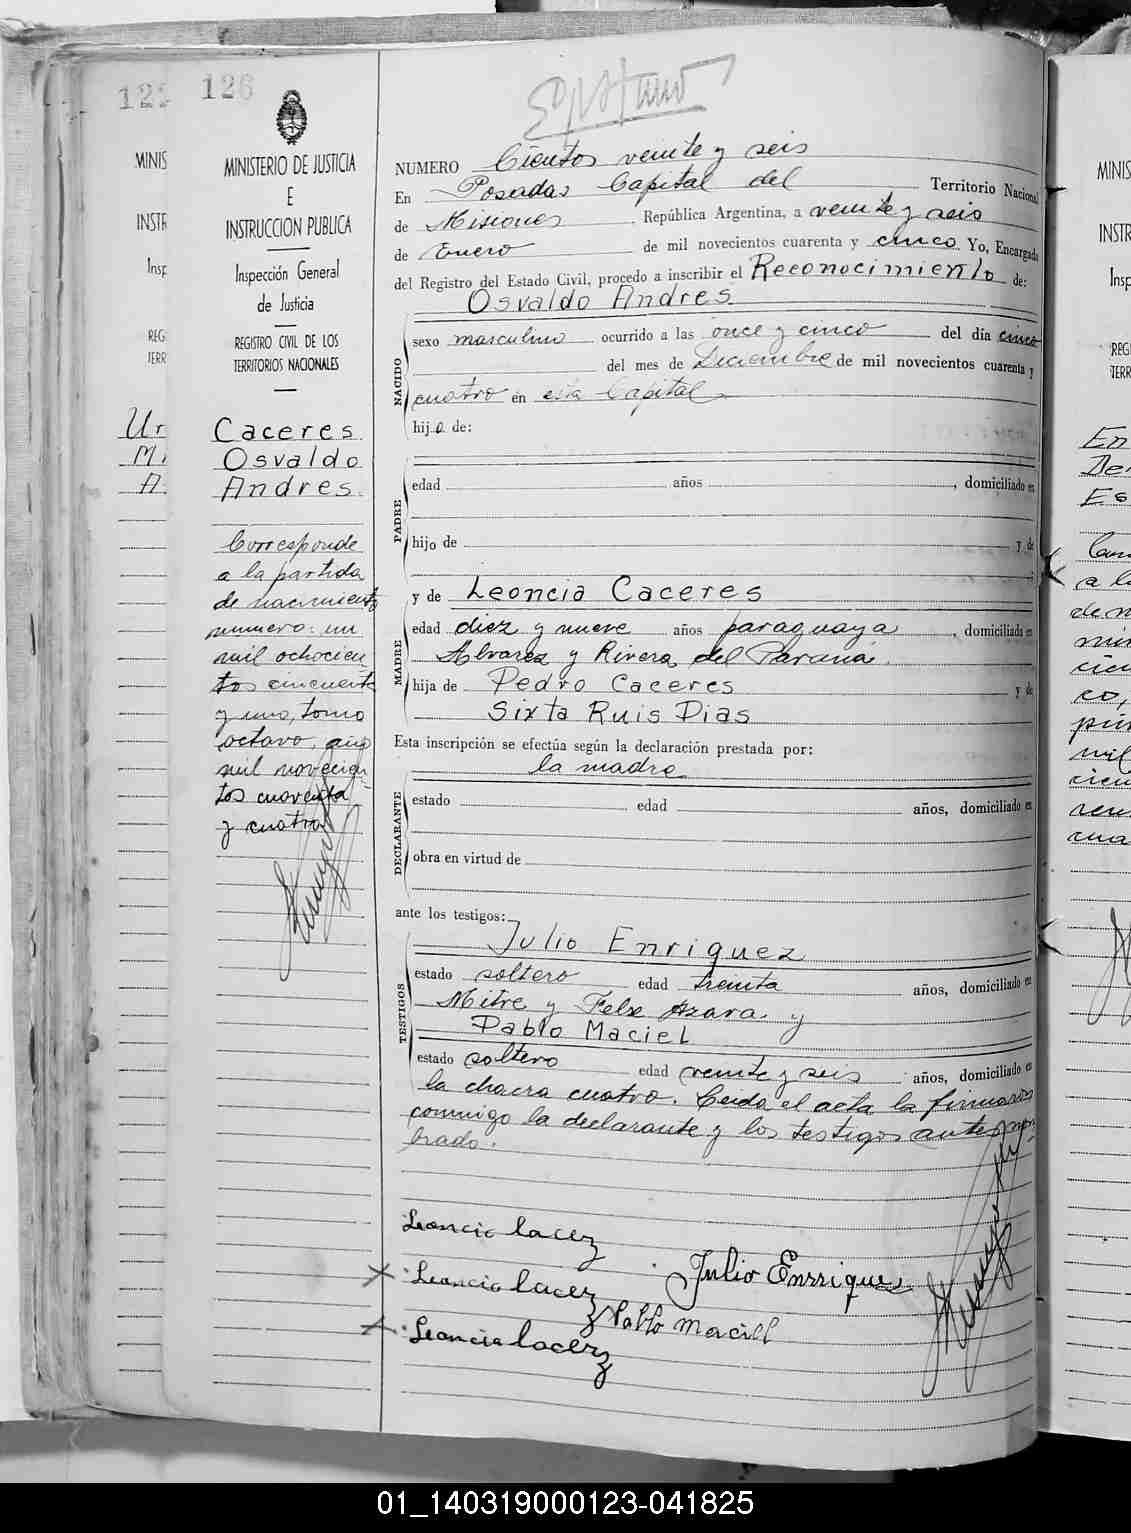 122
126
MINIS
INSTR
Insp
REG
TERR
Ur
Mi
A
MINISTERIO DE JUSTICIA
E
INSTRUCCION PUBLICA
Inspección General
de Justicia
REGISTRO CIVIL DE LOS
TERRITORIOS NACIONALES
Caceres
Osvaldo
Andres.
Corresponde
a la partida
de nacimiento
numero: un
mil ochocien
tos cincuenta
y uno, tomo
octavo, año
mil novecien
tos cuarenta
y cuatro
NUMERO Cientos veinte y seis
En Posadas Capital del Territorio Nacional
de Misiones República Argentina, a veinte y seis
de Enero de mil novecientos cuarenta y cinco Yo, Encargado
del Registro del Estado Civil, procedo a inscribir el Reconocimiento de:
Osvaldo Andres
NACIDO
sexo masculino ocurrido a las once y cinco del día cinco
del mes de Diciembre de mil novecientos cuarenta y
cuatro en esta Capital
hijo de:
PADRE
edad años , domiciliado en
hijo de y de
MADRE
y de Leoncia Caceres
edad diez y nueve años paraguaya , domiciliada en
Alvarez y Rivera del Paraná.
hija de Pedro Caceres y de
Sixta Ruis Dias
Esta inscripción se efectúa según la declaración prestada por:
la madre
DECLARANTE
estado , edad años, domiciliado en
obra en virtud de
ante los testigos:
TESTIGOS
Julio Enriquez
estado soltero edad treinta años, domiciliado en
Mitre y Felix Azara. y
Pablo Maciel
estado soltero edad veinte y seis años, domiciliado en
la chacra cuatro. Leida el acta la firmaron
conmigo la declarante y los testigos antes nom
brado.
Leoncia Cacerz
Leoncia Cacerz
Leoncia Cacerz
Julio Enrriquez
Pablo Maciell
MINIS
INSTR
Insp
REG
TERR
En
De
Es
a la
de n
cien
co,
mil
cien
cua
01_140319000123-041825